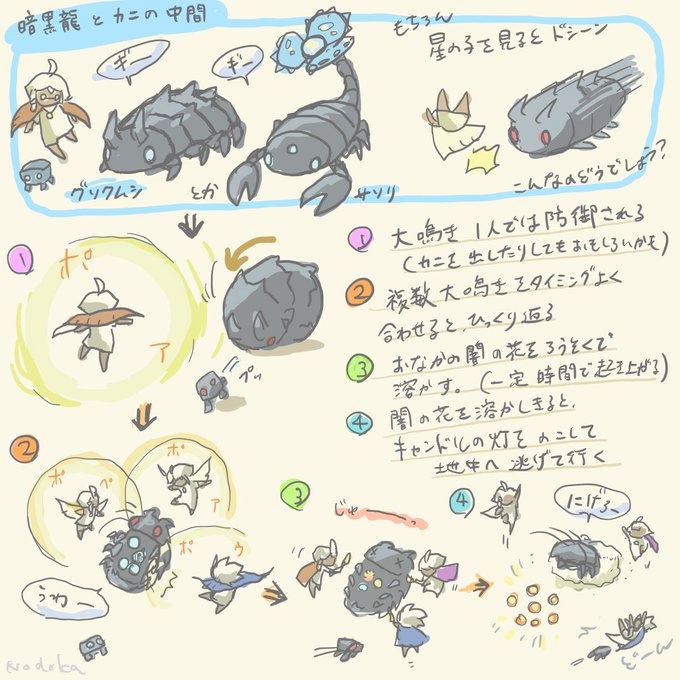 暗黒龍とカニの中間
もちろん
星の子を見るとドシーン
ギー
ギー
グソクムシ
とか
サソリ
こんなのどうでしょう?
① 大鳴き 1人では防御される
(カニを出したりしてもおもしろいかも)
② 複数大鳴きをタイミングよく
合わせると、ひっくり返る
③ おなかの闇の花をろうそくで
溶かす。(一定時間で起き上がる)
④ 闇の花を溶かしきると、
キャンドルの灯をのこして
地中へ逃げて行く
①
ポ
ア
ペッ
②
ポペ
ポア
ポゥ
うわー
③
じゅーーっ
④
にげろー
どーん